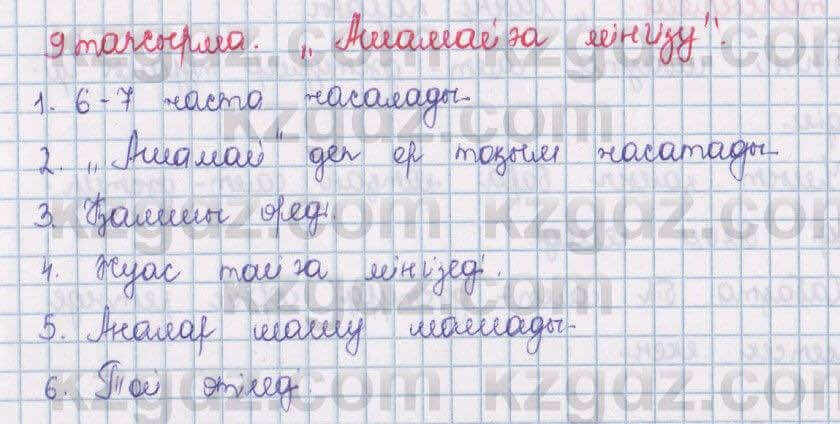 9 тапсырма. „Ашамайға мінгізу".
1. 6-7 жаста жасалады.
2. „Ашамай" деп ер тоқым жасатады
3. Қамшы өреді.
4. Жуас тайға мінгізеді.
5. Аналар шашу шашады.
6. Той өтіледі.
kzgdz.com